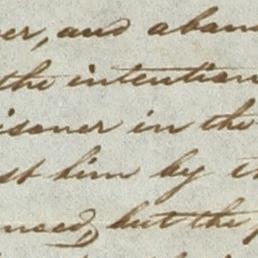 er, and aban
the intention
isoner in the
st him by t
nced, but the p